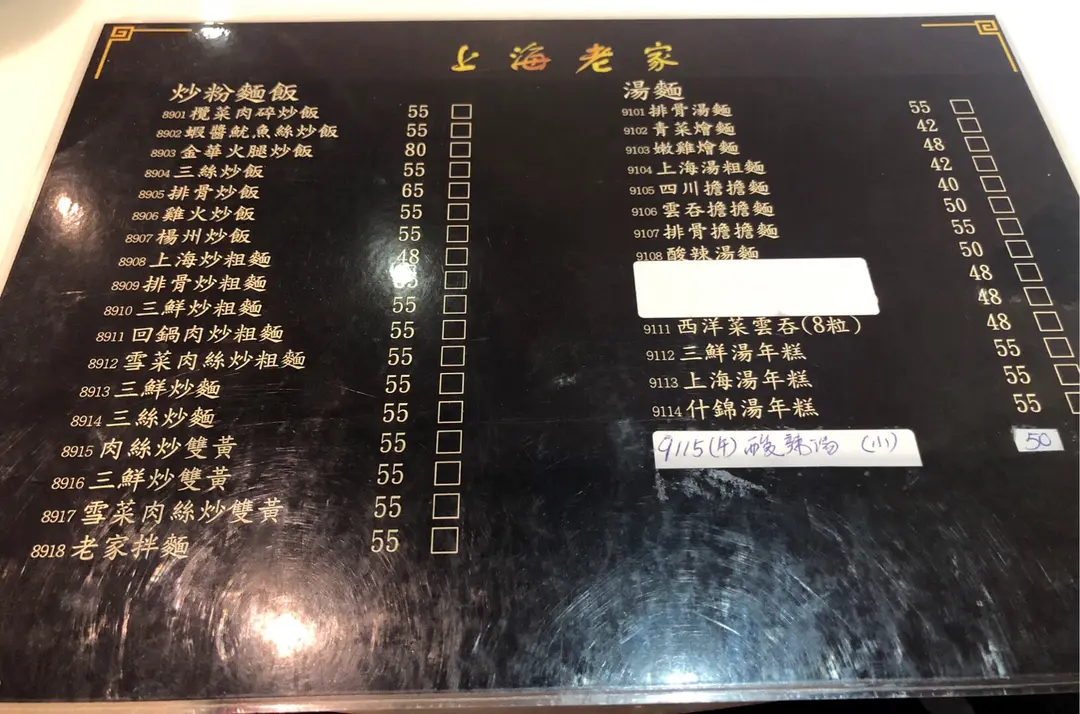 上海老家
炒粉麵飯
8901 欖菜肉碎炒飯 55
8902 蝦醬魷魚絲炒飯 55
8903 金華火腿炒飯 80
8904 三絲炒飯 55
8905 排骨炒飯 65
8906 雞火炒飯 55
8907 楊州炒飯 55
8908 上海炒粗麵 48
8909 排骨炒粗麵
8910 三鮮炒粗麵 55
8911 回鍋肉炒粗麵 55
8912 雪菜肉絲炒粗麵 55
8913 三鮮炒麵 55
8914 三絲炒麵 55
8915 肉絲炒雙黃 55
8916 三鮮炒雙黃 55
8917 雪菜肉絲炒雙黃 55
8918 老家拌麵 55
湯麵
9101 排骨湯麵 55
9102 青菜燴麵 42
9103 嫩雞燴麵 48
9104 上海湯粗麵 42
9105 四川擔擔麵 40
9106 雲吞擔擔麵 50
9107 排骨擔擔麵 55
9108 酸辣湯麵 50
48
48
9111 西洋菜雲吞(8粒) 48
9112 三鮮湯年糕 55
9113 上海湯年糕 55
9114 什錦湯年糕 55
9115(牛)酸辣汤 (小) 50